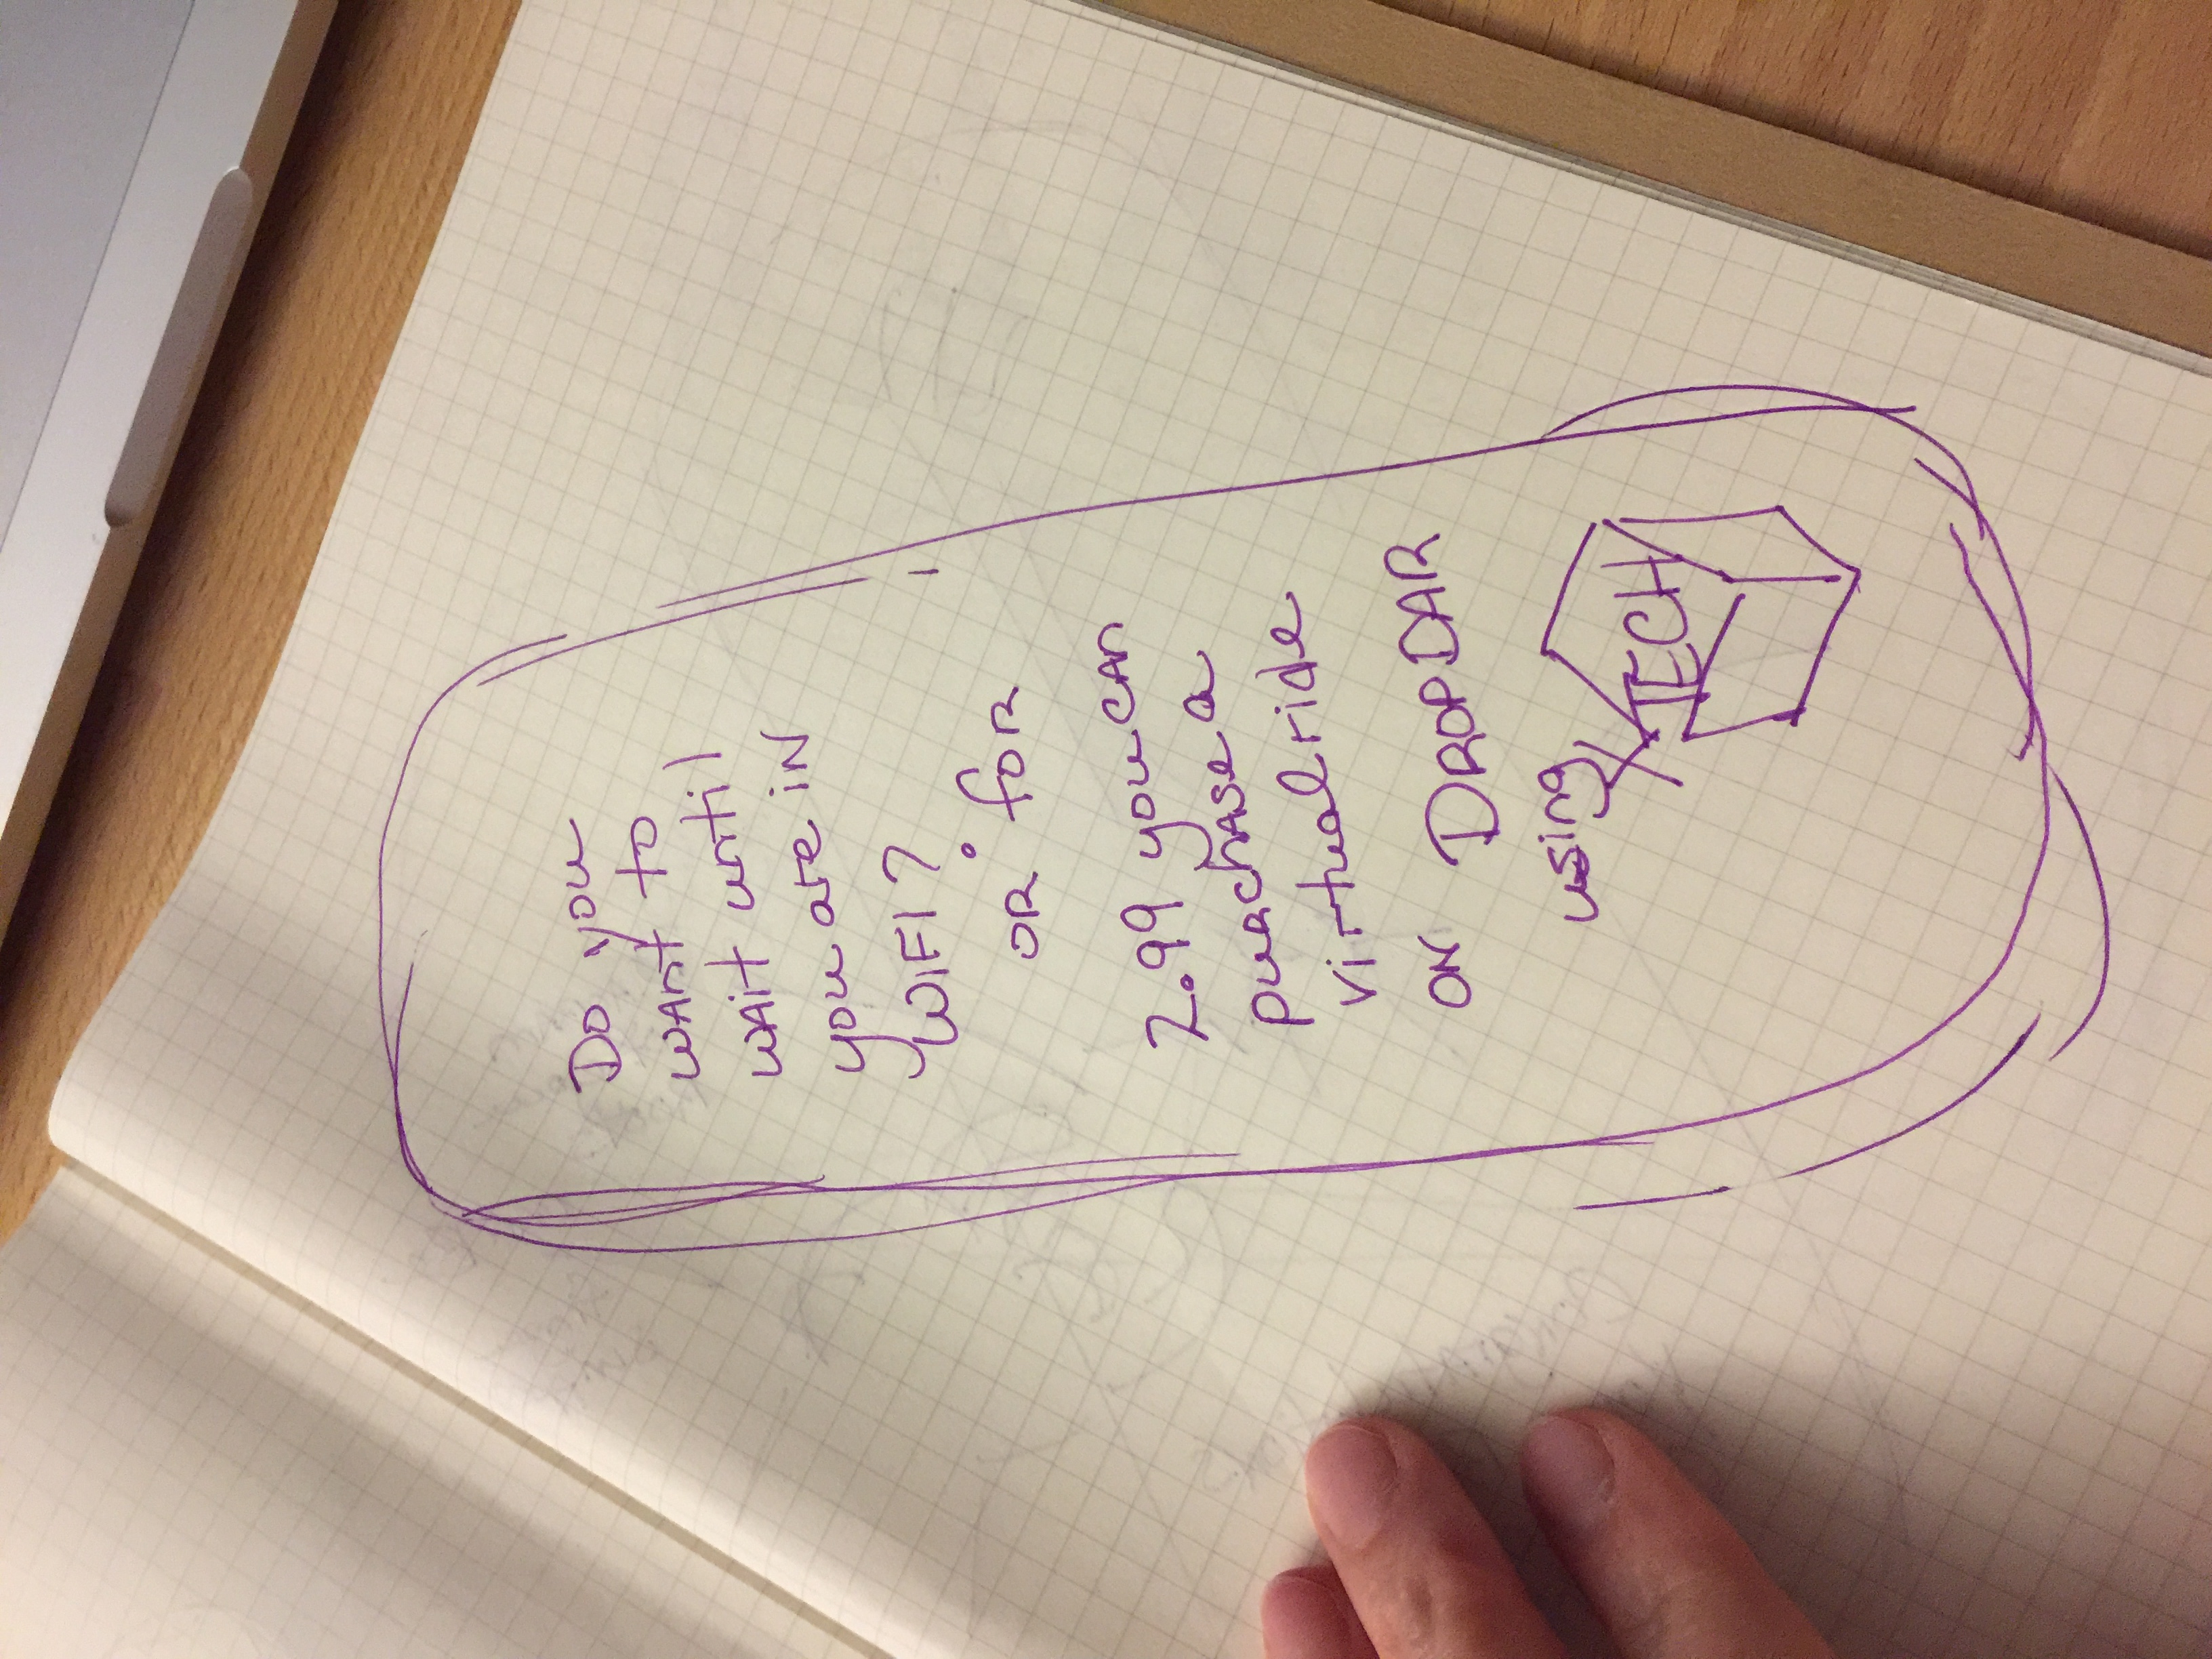 Do you
want to
wait until
you are in
WiFI?
or for
2.99 you can
purchase a
virtual ride
on DROPDAR
using
TECH